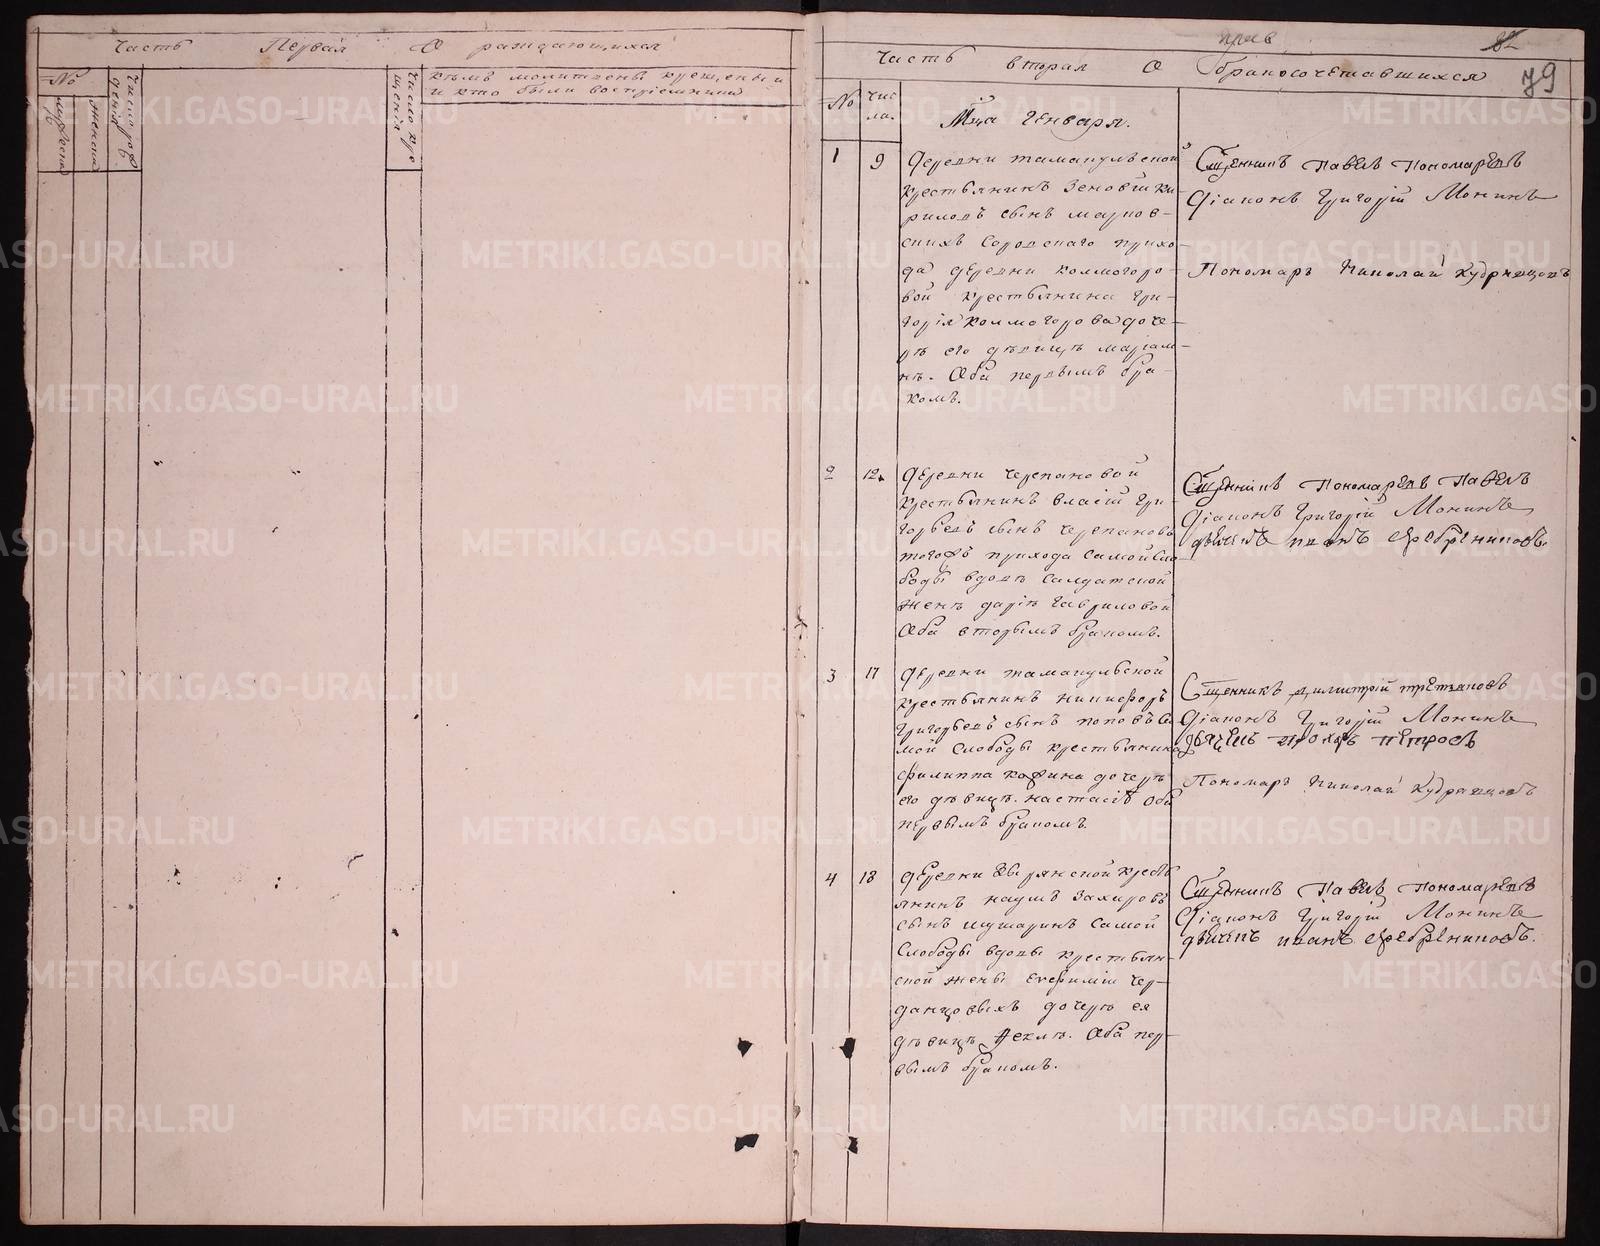 Часть Первая О раждающихся
№
мужеска
женска
Число рож
денія
Число кре
щенія
кѣмъ молитвены крещены и
и кто были воспріемники
82
79
Часть вторая О бракосочетавшихся
№
Чис
ла.
Мца Генваря.
1
9
деревни тамакульской
крестьянинъ Зеновіи Ки
риловъ сынъ марков-
скихъ
прихо-
да деревни колмогоро-
вой крестьянина гри-
горія колмогорова доче-
рь его дѣвицѣ
Оба первымъ бра-
комъ.
Сщенникъ Павелъ Пономаревъ
Діаконъ Григорій Мокинъ
Пономарь Николай Кудрявцовъ
2
12.
деревни черепановой
крестьянинъ власій гри
горьевъ сынъ черепановъ
тогожъ прихода самой сло
боды вдовѣ салдатской
женѣ даріѣ гавриловой
Оба вторымъ бракомъ.
Сщенникъ Пономаревъ Павелъ
Діаконъ Григорій Мокинъ
дьячекъ иванъ серебрениковъ.
3
17
деревни тамакульской
крестьянинъ никифоръ
григорьевъ сынъ поповъ са
мой слободы крестьянина
филиппа кожина дочерь
его дѣвицѣ настасіѣ Оба
первымъ бракомъ.
Сщенникъ димитрій третьяковъ
Діаконъ Григорій Мокинъ
дьячекъ прохоръ петровъ
Пономарь Николай Кудрявцовъ
4
18
деревни крестъ
янинъ наумъ Захаровъ
сынъ шушаринъ самой
слободы вдовы крестьян-
ской жены Евфиміи чер-
данцовыхъ дочерь ея
дѣвицѣ Ѳеклѣ. Оба пер-
вымъ бракомъ.
Сщенникъ Павелъ Пономаревъ
Діаконъ Григорій Мокинъ
дьячекъ иванъ серебрениковъ.
METRIKI.GASO-URAL.RU